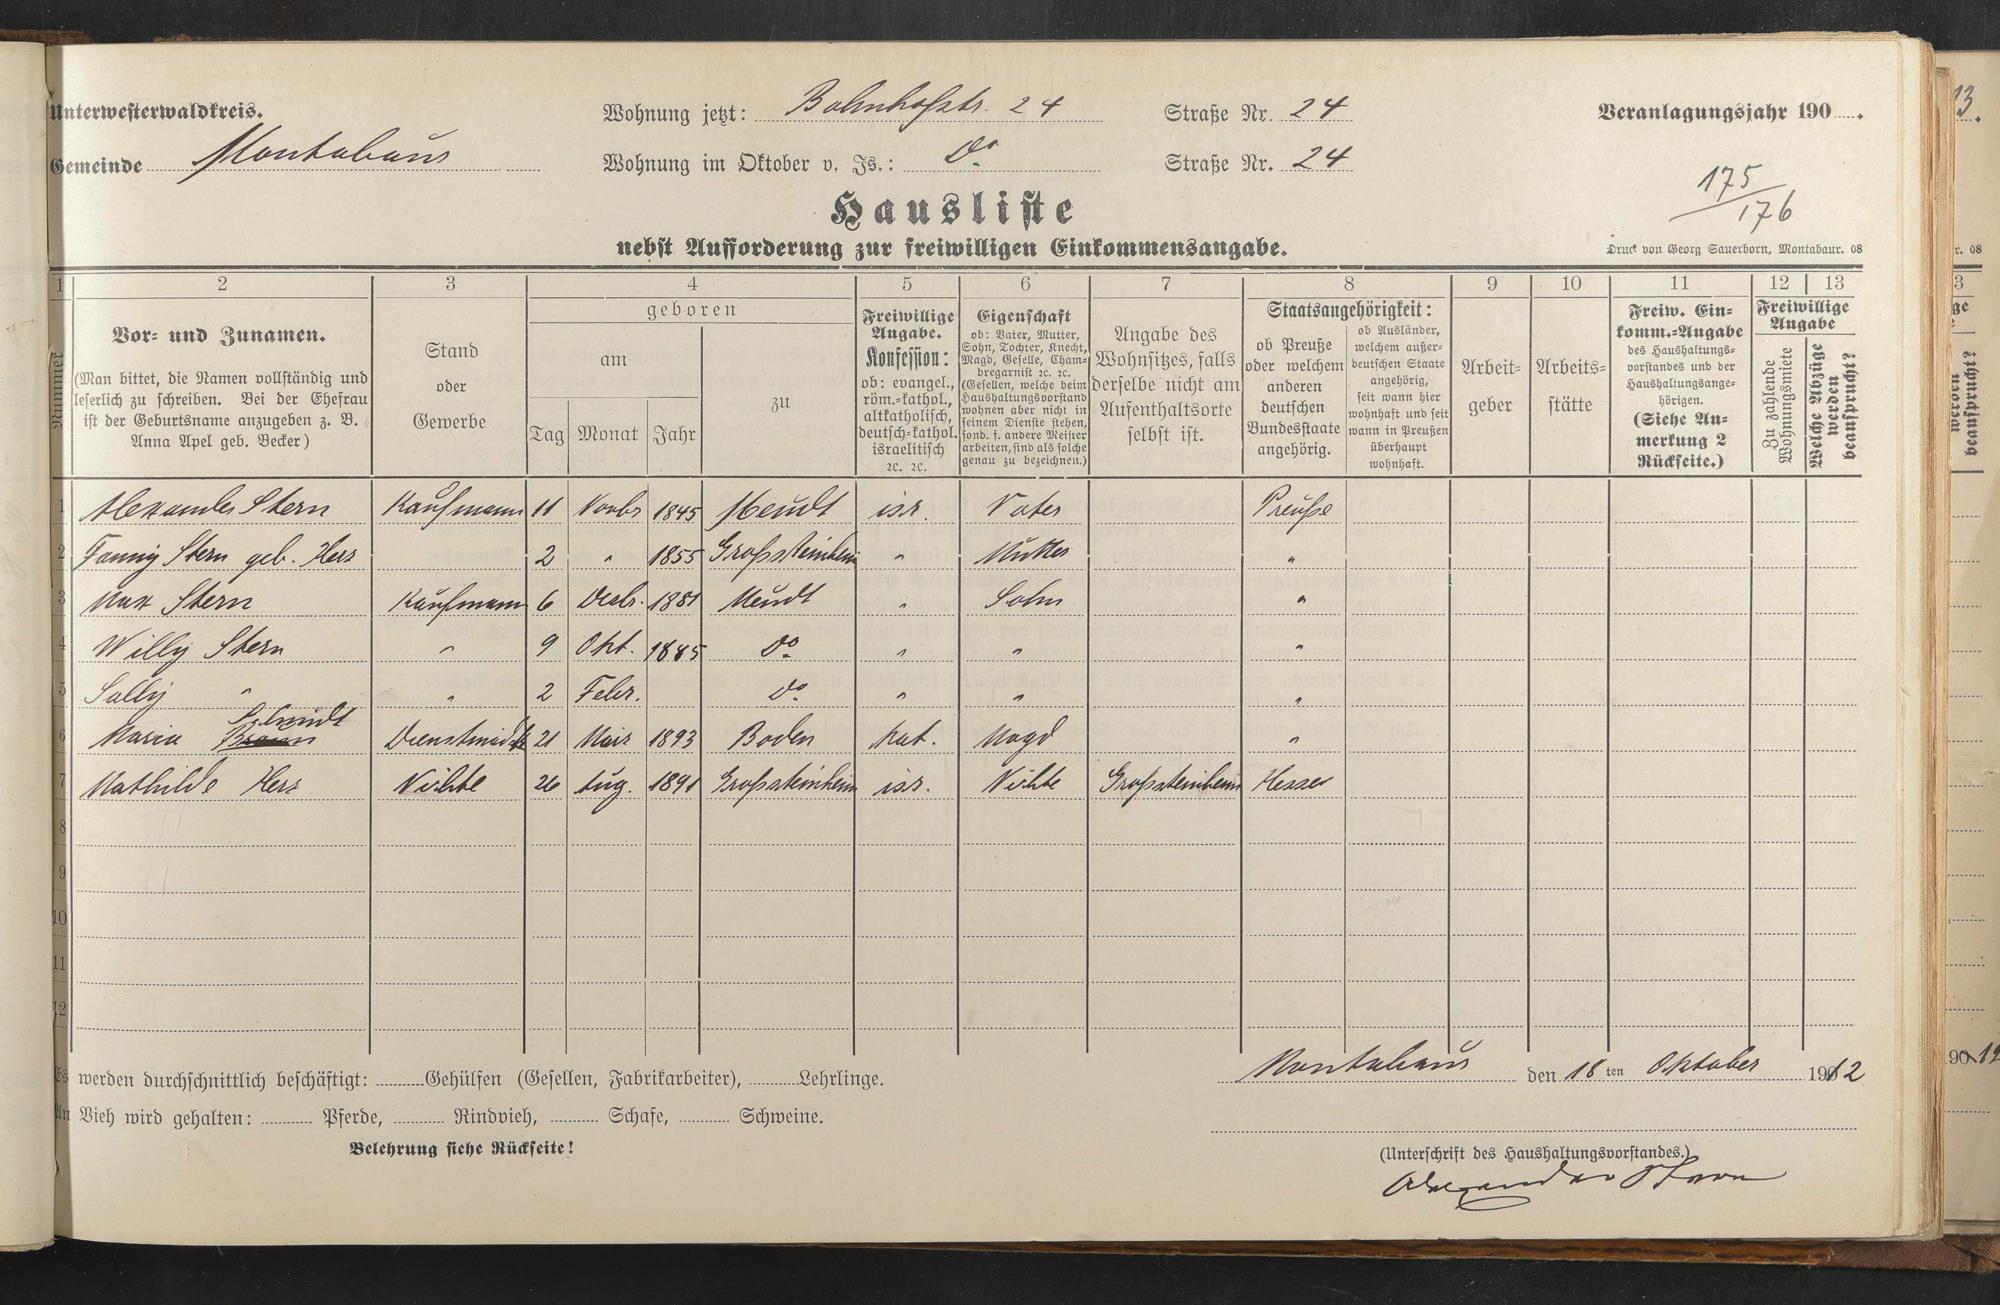 Unterwesterwaldkreis.
Wohnung jetzt: Bahnhofstr. 24 Straße Nr. 24
Veranlagungsjahr 190 .
Gemeinde Montabaur
Wohnung im Oktober v. Js.: do Straße Nr. 24
175/176
Hausliste
nebst Aufforderung zur freiwilligen Einkommensangabe.
Druck von Georg Sauerborn, Montabaur. 08
1 2 3 4 5 6 7 8 9 10 11 12 13
Nummer
Vor- und Zunamen.
(Man bittet, die Namen vollständig und
leserlich zu schreiben. Bei der Ehefrau
ist der Geburtsname anzugeben z. B.
Anna Apel geb. Becker)
Stand
oder
Gewerbe
geboren
am
Tag Monat Jahr
zu
Freiwillige
Angabe.
Konfession:
ob: evangel.,
röm.-kathol.,
altkatholisch,
deutsch-kathol.
israelitisch
ꝛc. ꝛc.
Eigenschaft
ob: Vater, Mutter,
Sohn, Tochter, Knecht,
Magd, Geselle, Cham-
bregarnist ꝛc. ꝛc.
(Gesellen, welche beim
Haushaltungsvorstand
wohnen aber nicht in
seinem Dienste stehen,
sond. f. andere Meister
arbeiten, sind als solche
genau zu bezeichnen.)
Angabe des
Wohnsitzes, falls
derselbe nicht am
Aufenthaltsorte
selbst ist.
Staatsangehörigkeit:
ob Preuße
oder welchem
anderen
deutschen
Bundesstaate
angehörig.
ob Ausländer,
welchem außer-
deutschen Staate
angehörig,
seit wann hier
wohnhaft und seit
wann in Preußen
überhaupt
wohnhaft.
Arbeit-
geber
Arbeits-
stätte
Freiw. Ein-
komm.-Angabe
des Haushaltungs-
vorstandes und der
Haushaltungsange-
hörigen.
(Siehe An-
merkung 2
Rückseite.)
Freiwillige
Angabe
Zu zahlende
Wohnungsmiete
Welche Abzüge
werden
beansprucht?
1 Alexander Stern Kaufmann 11 Novbr 1845 Meudt isr. Vater Preuße
2 Fanny Stern geb. Herz 2 " 1855 Grosssteinheim " Mutter "
3 Max Stern Kaufmann 6 Decbr. 1881 Meudt " Sohn "
4 Willy Stern " 9 Okt. 1885 do " " "
5 Sally " " 2 Febr. do " " "
Schmidt
6 Maria Braun Dienstmädch 21 März 1893 Boden kat. Magd "
7 Mathilde Herz Nichte 26 Aug. 1891 Grosssteinheim isr. Nichte Grosssteinheim Hesse
8
9
10
11
12
Es werden durchschnittlich beschäftigt: Gehülfen (Gesellen, Fabrikarbeiter), Lehrlinge.
Montabaur den 18 ten Oktober 1912
An Vieh wird gehalten: Pferde, Rindvieh, Schafe, Schweine.
Belehrung siehe Rückseite!
(Unterschrift des Haushaltungsvorstandes.)
Alexander Stern